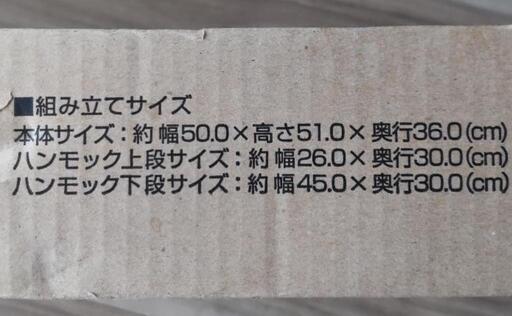 ■組み立てサイズ
本体サイズ：約 幅50.0×高さ51.0×奥行36.0(cm)
ハンモック上段サイズ：約 幅26.0×奥行30.0(cm)
ハンモック下段サイズ：約 幅45.0×奥行30.0(cm)